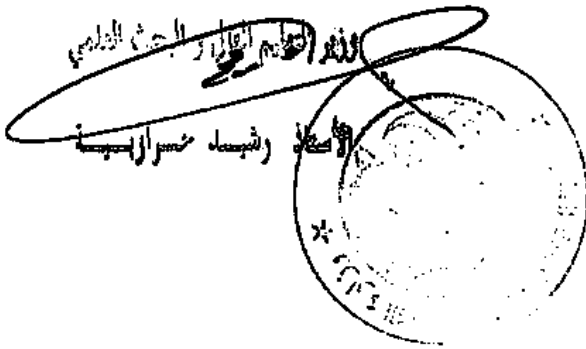 وزير التعليم العالي و البحث العلمي
الأستاذ رشيد حراوبية